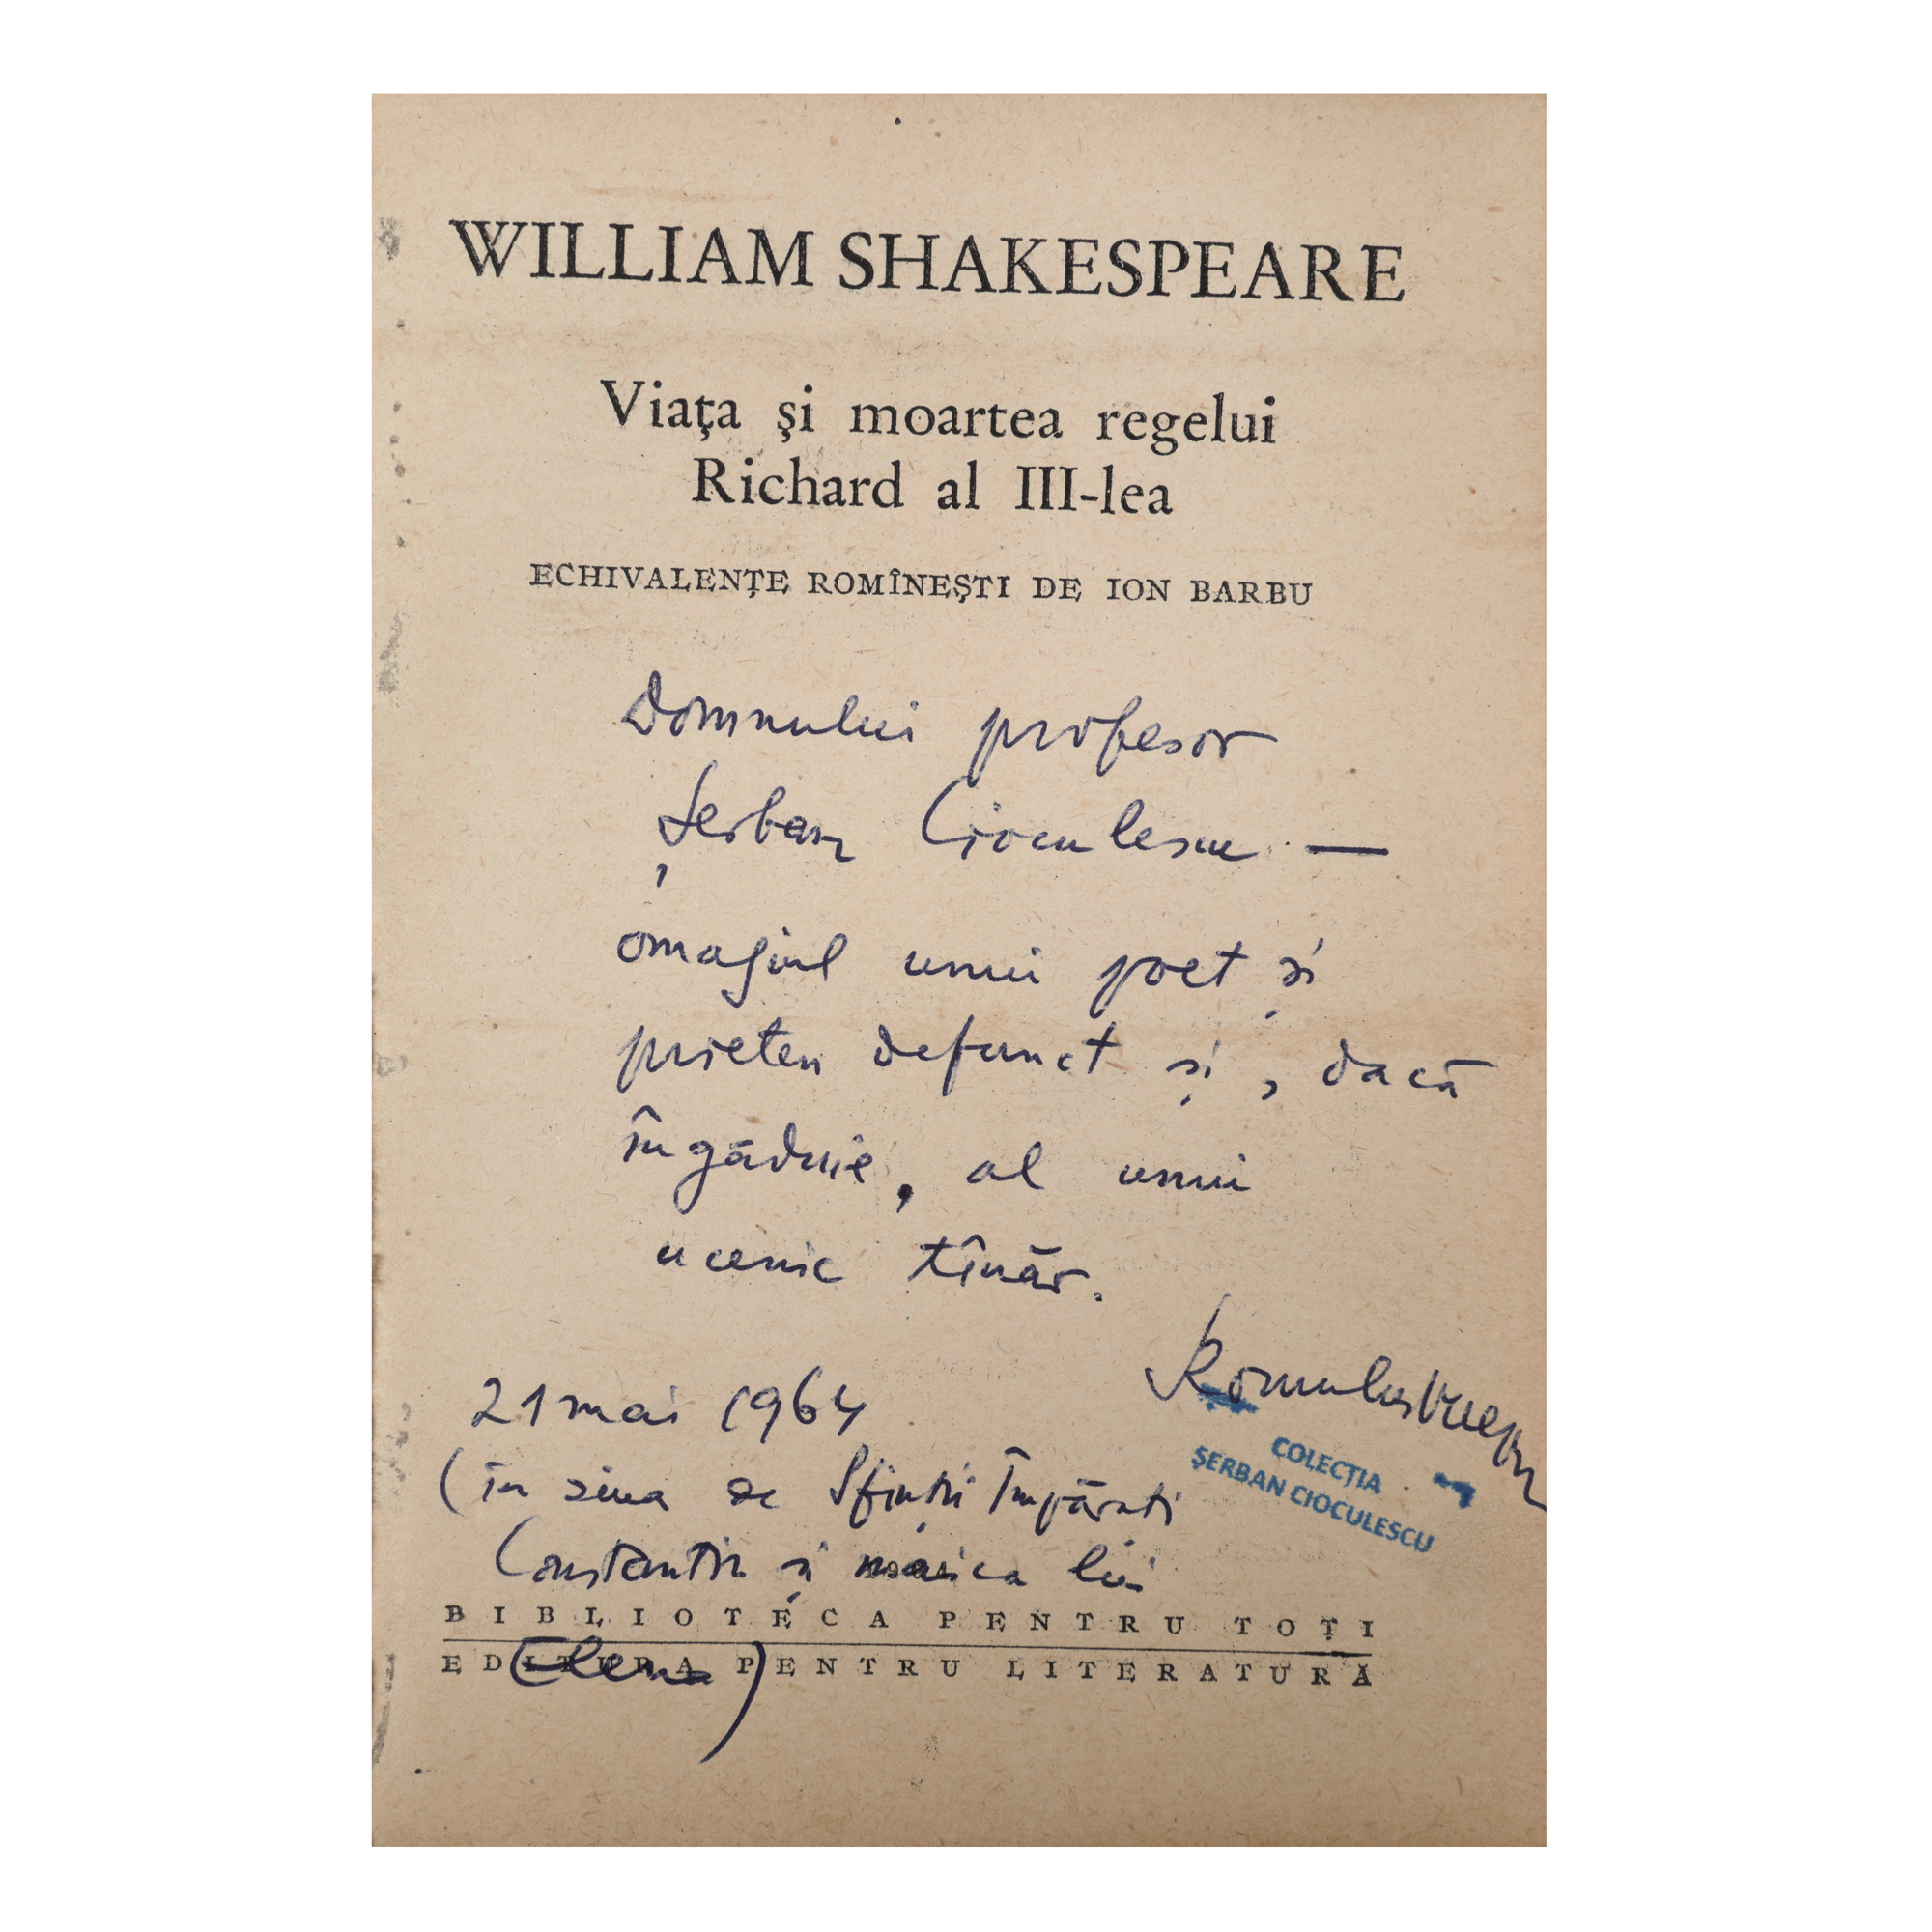 WILLIAM SHAKESPEARE
Viaţa şi moartea regelui
Richard al III-lea
ECHIVALENŢE ROMÎNEŞTI DE ION BARBU
Domnului profesor
Șerban Cioculescu —
omagiul unui poet și
prieten defunct și, dacă
îngăduie, al unui
ucenic tînăr.
Romulus Vulpescu
21 mai 1964
(în ziua de Sfinții Împărați
Constantin și maica lui
Elena)
COLECȚIA
ȘERBAN CIOCULESCU
BIBLIOTECA PENTRU TOŢI
EDITURA PENTRU LITERATURĂ